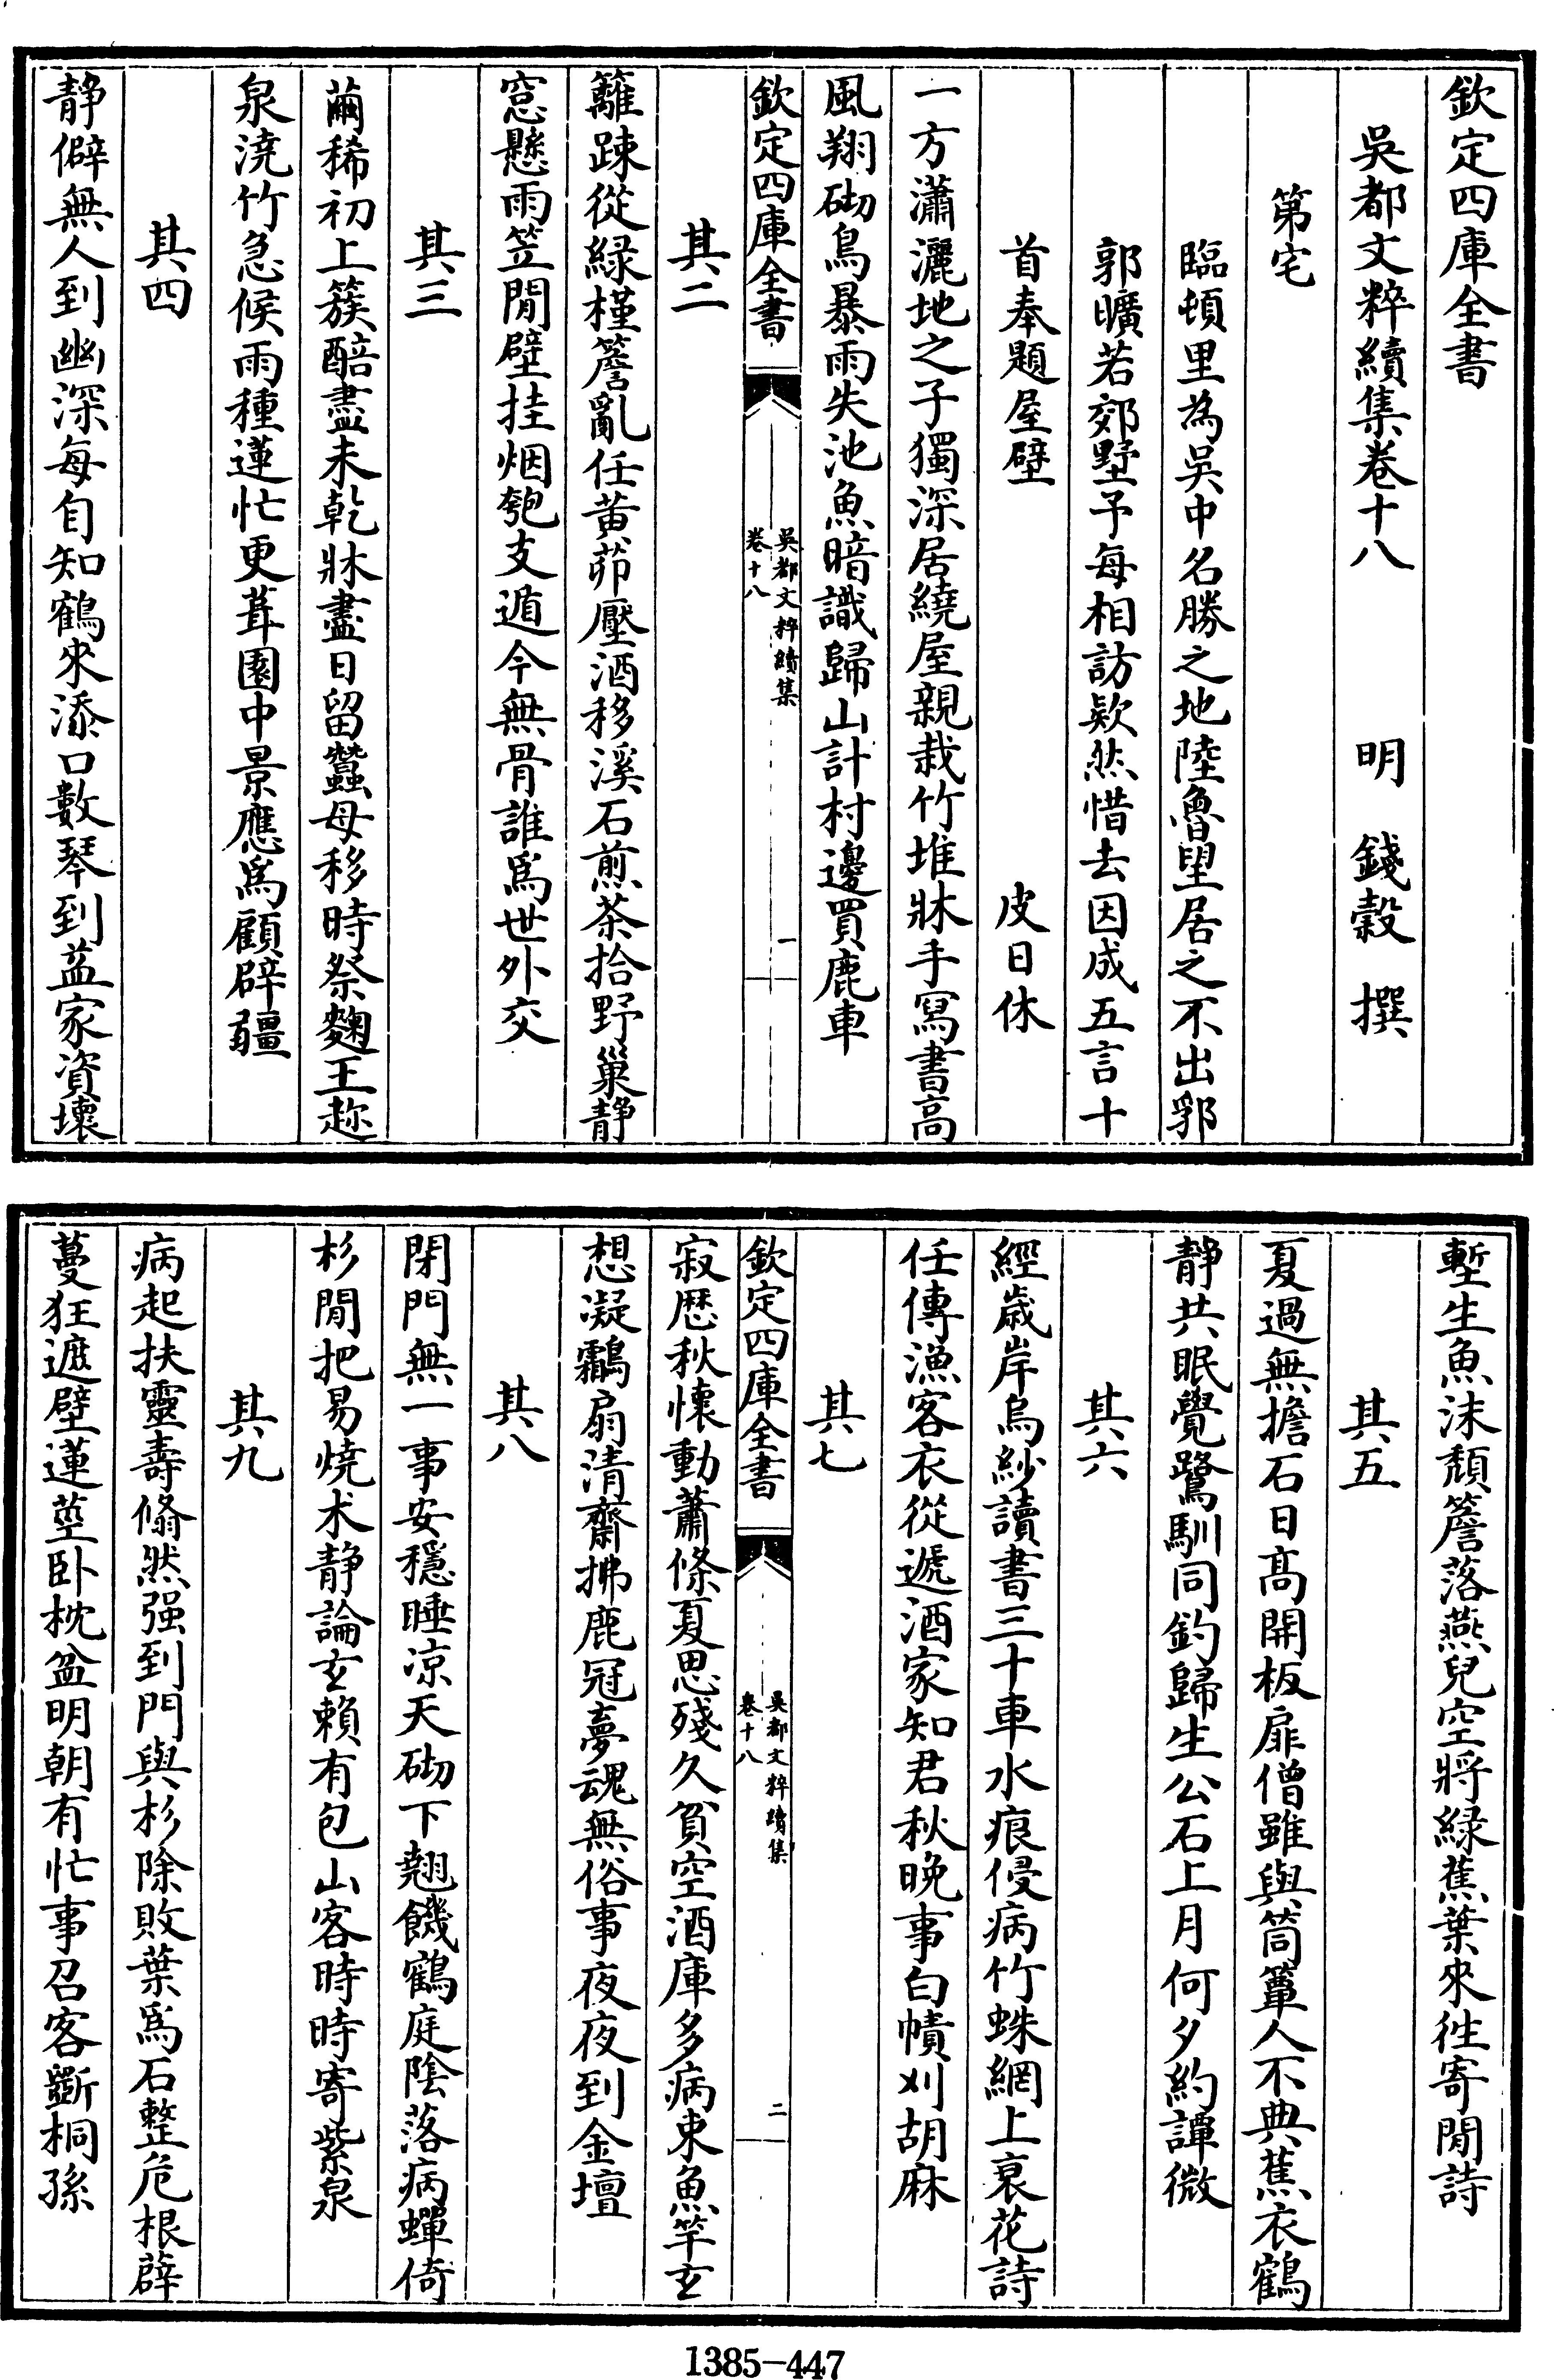 欽定四庫全書
吳都文粹續集卷十八　明　錢穀　撰
第宅
臨頓里為吳中名勝之地陸魯望居之不出郛
郭曠若郊墅予每相訪欵然惜去因成五言十
首奉題屋壁　皮日休
一方瀟灑地之子獨深居繞屋親栽竹堆牀手寫書高
風翔砌鳥暴雨失池魚暗識歸山計村邊買鹿車
欽定四庫全書
吳都文粹續集
卷十八
一
其二
籬疎從緑槿簷亂任黄茆壓酒移溪石煎茶拾野巢静
窓懸雨笠閒壁挂烟匏支遁今無骨誰爲世外交
其三
繭稀初上簇醅盡未乾牀盡日留蠶母移時祭麴王趂
泉澆竹急候雨種蓮忙更葺園中景應爲顧辟疆
其四
静僻無人到幽深每自知鶴來添口數琴到益家資壞
塹生魚沫頽簷落燕兒空將緑蕉葉來徃寄閒詩
其五
夏過無擔石日髙開板扉僧雖與筒簟人不典蕉衣鶴
静共眠覺鷺馴同釣歸生公石上月何夕約譚微
其六
經歲岸烏紗讀書三十車水痕侵病竹蛛網上衰花詩
任傳漁客衣從遞酒家知君秋晚事白幘刈胡麻
其七
欽定四庫全書
吳都文粹續集
卷十八
二
寂歴秋懷動蕭條夏思殘久貧空酒庫多病束魚竿玄
想凝鸖扇清齋拂鹿冠夢魂無俗事夜夜到金壇
其八
閉門無一事安穩睡凉天砌下翹饑鶴庭陰落病蟬倚
杉閒把易燒术静論玄賴有包山客時時寄紫泉
其九
病起扶靈壽翛然强到門與杉除敗葉爲石整危根薜
蔓狂遮壁蓮莖卧枕盆明朝有忙事召客斵桐孫
1385-447